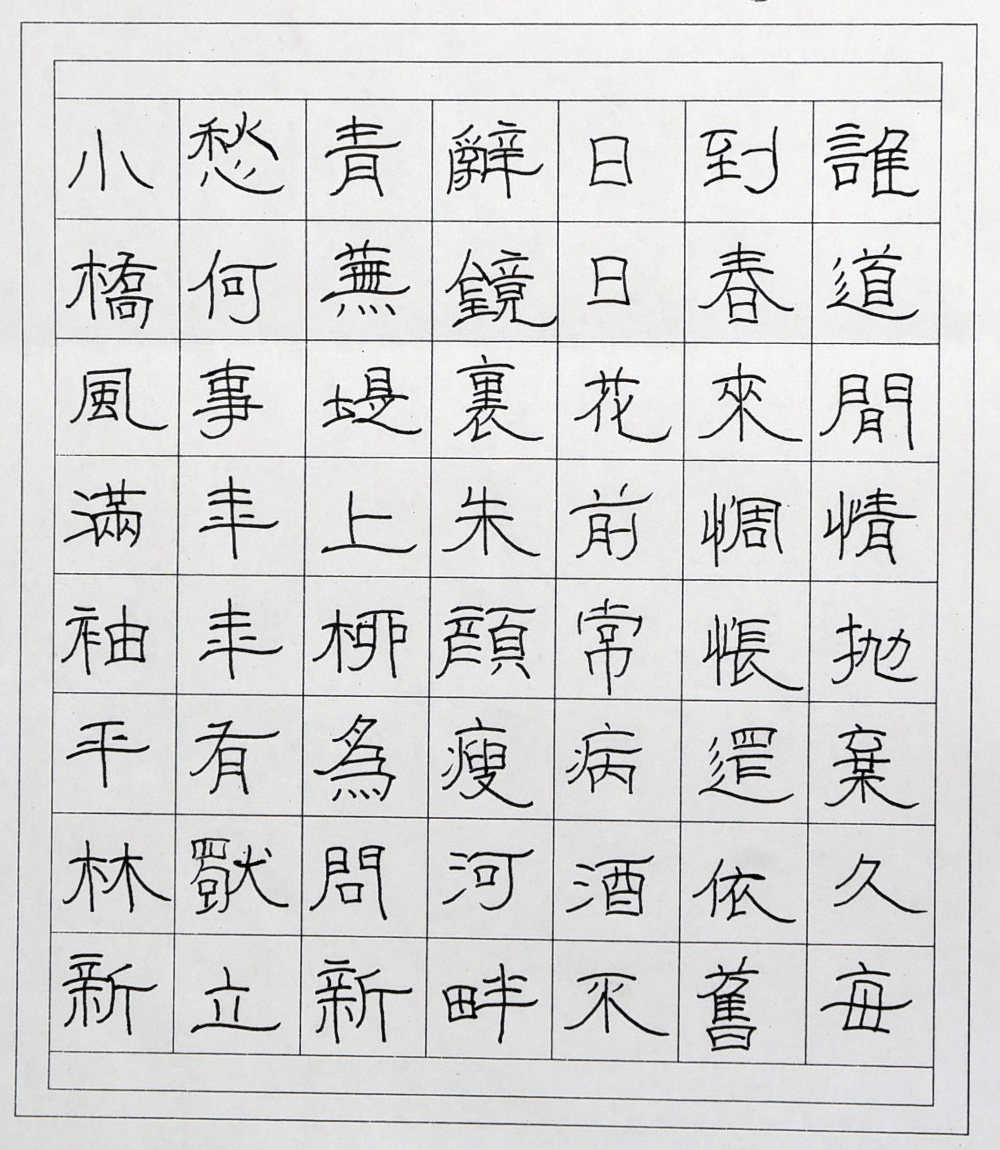 誰道閒情拋棄久每
到春來惆悵還依舊
日日花前常病酒不
辭鏡裏朱顏瘦河畔
青蕪堤上柳為問新
愁何事年年有獨立
小橋風滿袖平林新